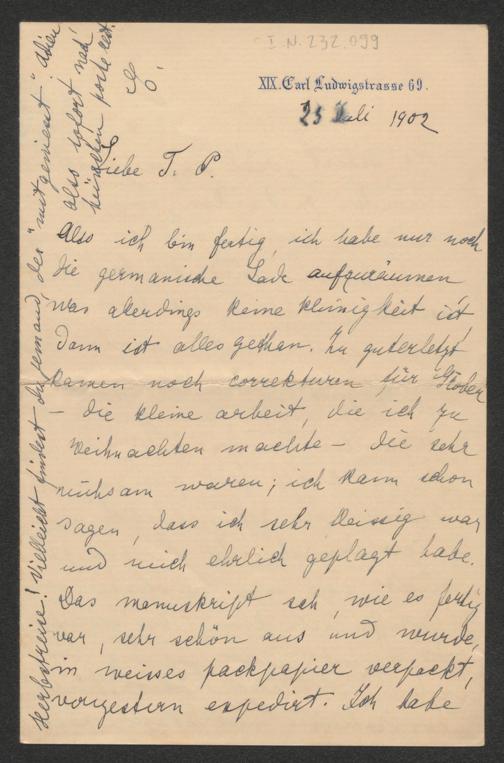 I.N. 232.099
XIX. Carl Ludwigstrasse 69.
25 Juli 1902
Liebe T. P.
Also ich bin fertig, ich habe nur noch
die germanische Lade aufzuräumen
was allerdings keine kleinigkeit ist,
dann ist alles gethan. Zu guterletzt
kamen noch correkturen für
– die kleine arbeit, die ich zu
Weihnachten machte – die sehr
mühsam waren; ich kann schon
sagen, dass ich sehr fleissig war
und mich ehrlich geplagt habe.
Das manuskript sah, wie es fertig
war, sehr schön aus und wurde,
in weisses packpapier verpackt,
vorgestern expedirt. Ich habe
Herbstreise! Vielleicht findest du jemand, der "mitgeniesst." Adieu
also sofort nach
München poste rest.
G.